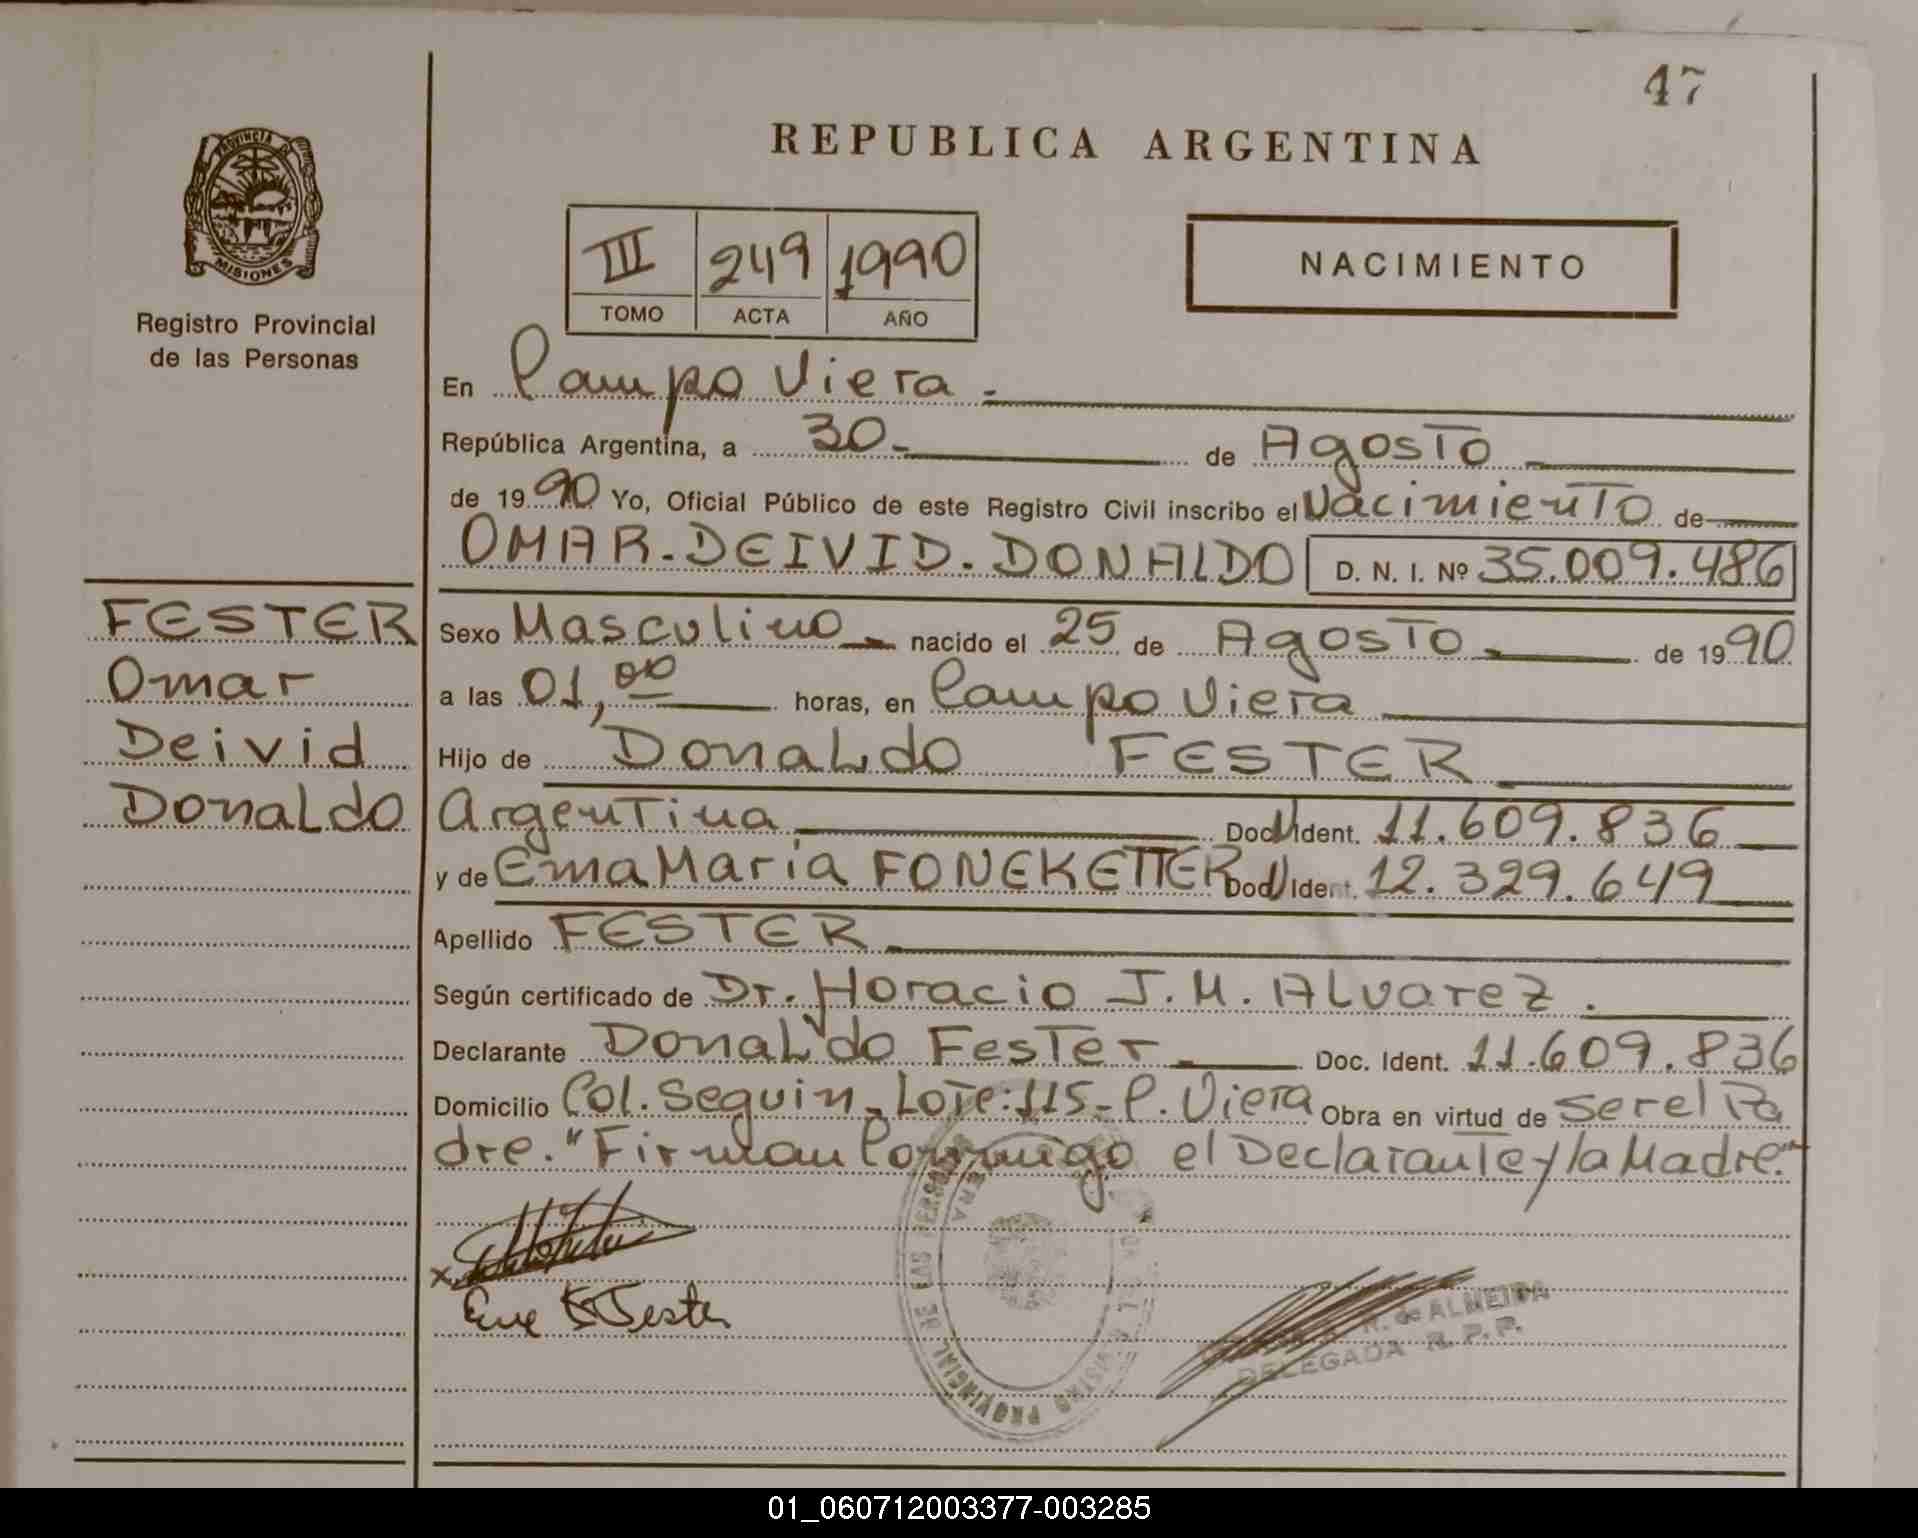 47
REPUBLICA ARGENTINA
PROVINCIA DE
MISIONES
Registro Provincial
de las Personas
III 249 1990
TOMO ACTA AÑO
NACIMIENTO
En Campo Viera.
República Argentina, a 30 de Agosto
de 1990 Yo, Oficial Público de este Registro Civil inscribo el Nacimiento de
OMAR-DEIVID. DONALDO D. N. I. Nº 35.009.486
FESTER
Omar
Deivid
Donaldo
Sexo Masculino nacido el 25 de Agosto de 1990
a las 01,00 horas, en Campo Viera
Hijo de Donaldo FESTER
Argentina Doc. Ident. 11.609.836
y de Ema Maria FONEKETTER Doc. Ident. 12.329.649
Apellido FESTER
Según certificado de Dr. Horacio J. M. Alvarez.
Declarante Donaldo Fester Doc. Ident. 11.609.836
Domicilio Col. Seguin - Lote: 115 - C. Viera Obra en virtud de ser el Pa
dre. "Firman Conmigo el Declarante y la Madre."
REGISTRO PROVINCIAL DE LAS PERSONAS
R. de ALMEIDA
DELEGADA R. P. P.
01_060712003377-003285